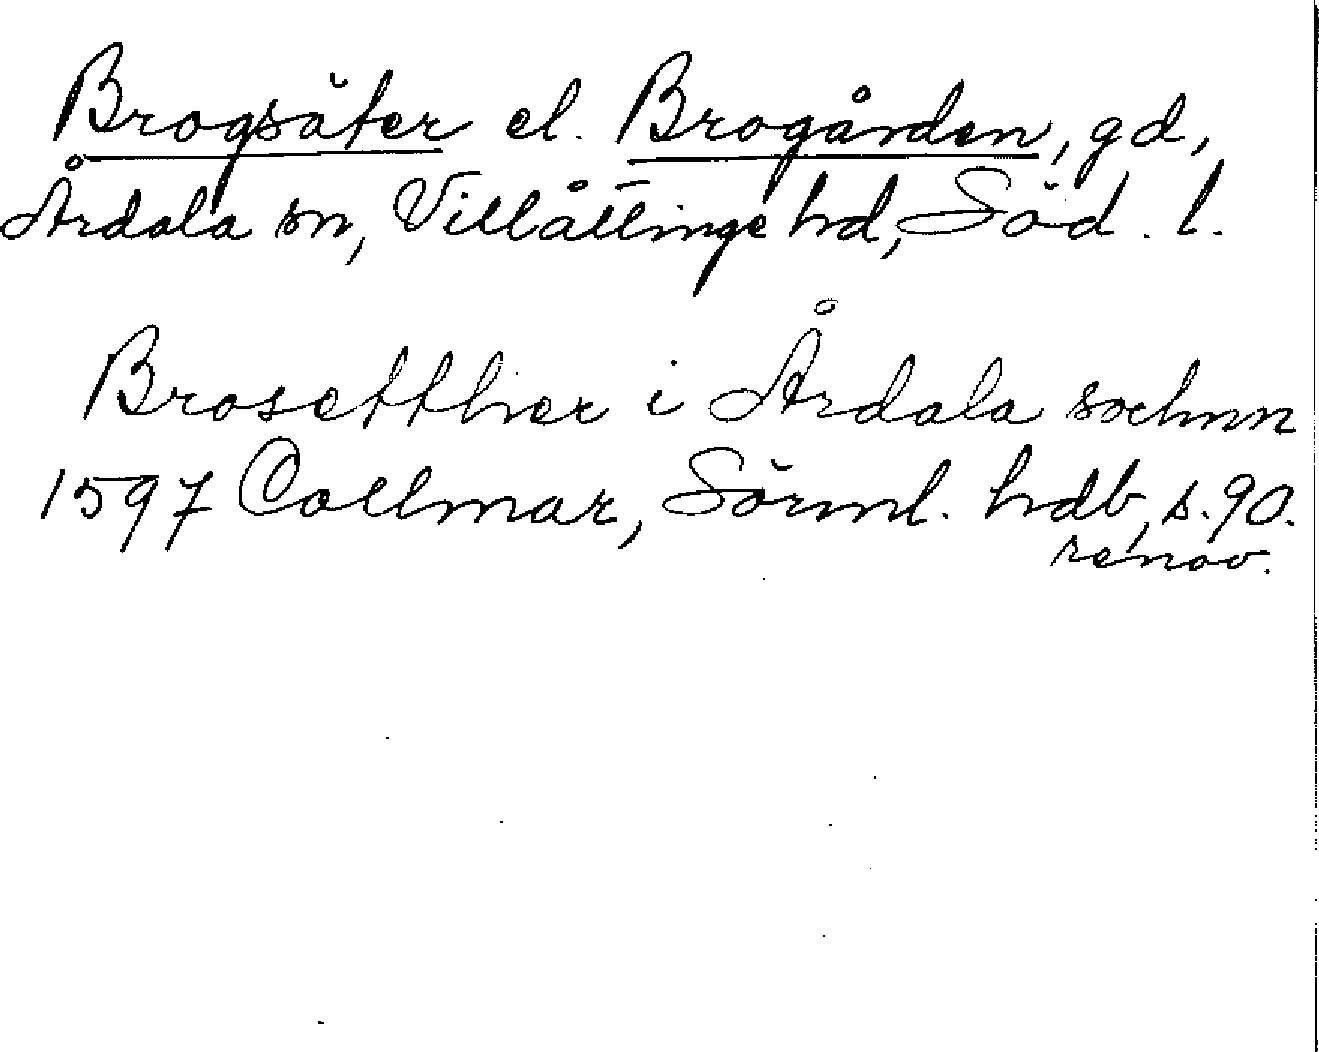 Brogsäter el. Brogården, gd,
Årdala sn, Villåttinge hd, Söd. l.
Brosetther i Årdala sochnn
1597 Collmar, Sörml. hdb, s. 90.
renov.